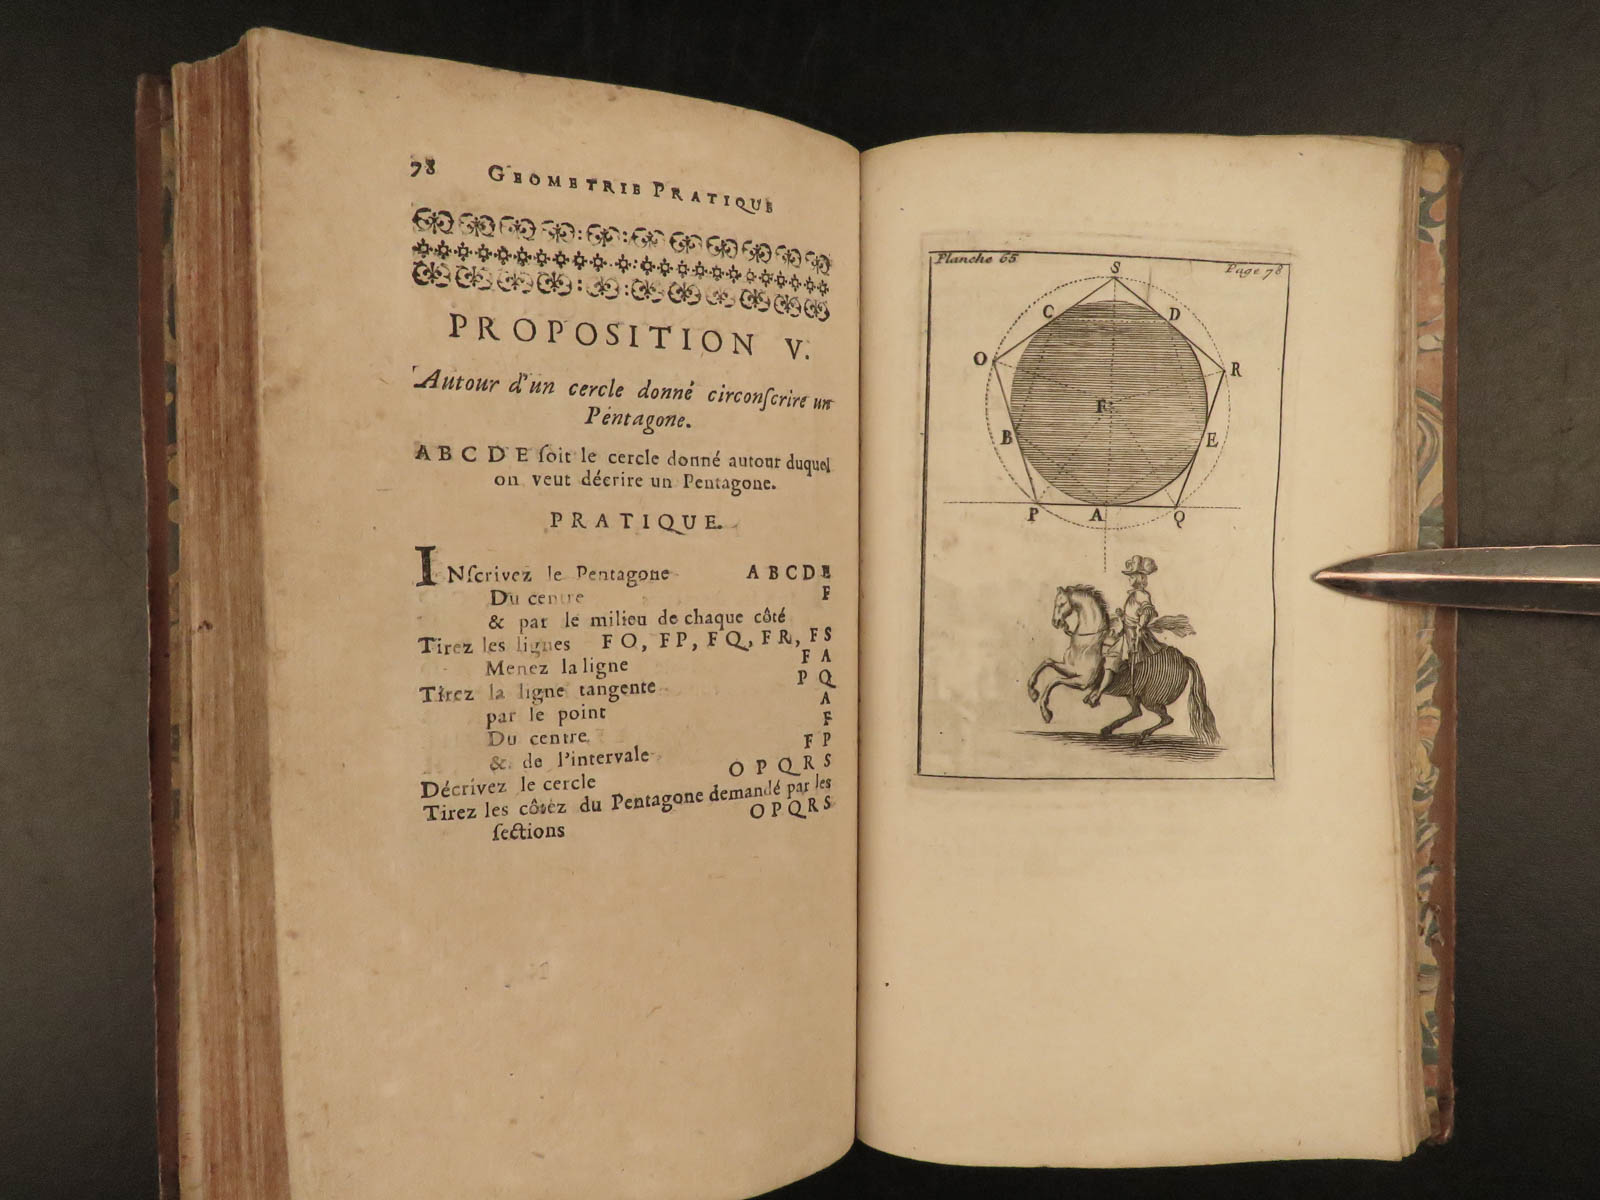 78 GEOMETRIE PRATIQUE
PROPOSITION V.
Autour d'un cercle donné circonſcrire un
Pentagone.
A B C D E ſoit le cercle donné autour duquel
on veut décrire un Pentagone.
PRATIQUE.
INſcrivez le Pentagone A B C D E
Du centre F
& par le milieu de chaque côté
Tirez les lignes F O, F P, F Q, F R, F S
Menez la ligne F A
Tirez la ligne tangente P Q
par le point A
Du centre F
& de l'intervale F P
Décrivez le cercle O P Q R S
Tirez les côtez du Pentagone demandé par les
ſections O P Q R S
Planche 65 Page 78
S
C D
O R
F
B E
P A Q